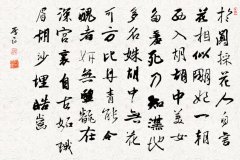 于闐採花人自言
花相似明妃一朝
西入胡胡中美女
多羞死乃知漢地
多名姝胡中無花
可方比丹青能令
醜者妍無鹽翻在
深宮裏自古妒蛾
眉胡沙埋皓齒